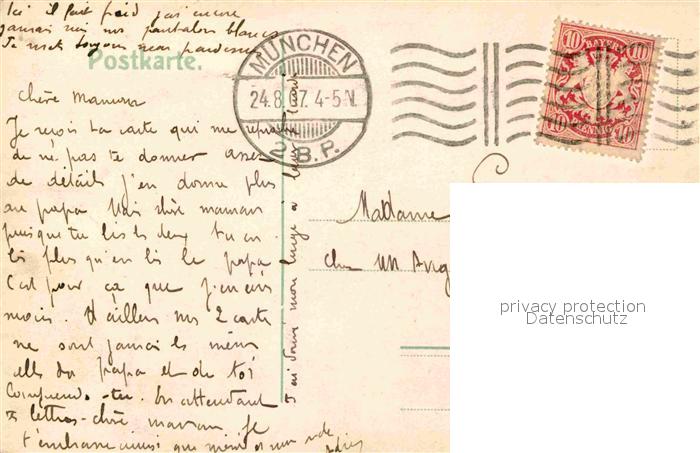 Ici il fait froid j'ai encore
jamais mis mes pantalons blancs
Je mets toujours mon pardessus
Postkarte.
MÜNCHEN
24.8.07. 4-5 N.
2 B.P.
10 BAYERN 10
10 PFENNIG 10
Chère Maman
Je reçois ta carte qui me reproche
de ne pas te donner assez
de détails j'en donne plus
au papa Mais chère maman
puisque tu lis les deux tu en
lis plus qu'en lis le papa
C'est pour ça que j'en écris
moins. D'ailleurs mes 2 cartes
ne sont jamais les mêmes
elle du papa et de toi
Comprends-tu. En attendant
lettres chère maman je
t'embrasse ainsi que
J'ai donné mon linge à laver
Madame
chez Un Ang
privacy protection
Datenschutz